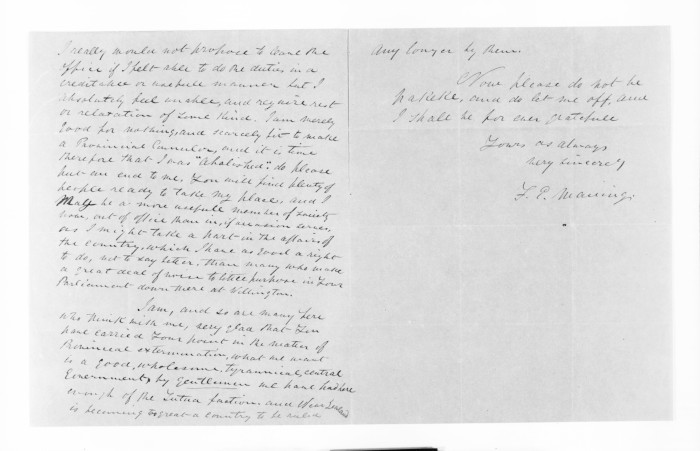 I really would not propose to leave the
office if I felt able to do the duties in a
creditable or usefull manner but I
absolutely feel unable, and require rest
or relaxation of some kind. I am merely
good for nothing, and scarcely fit to make
a Provincial Councilor, and it is time
therefore that I was "abolished". do please
put an end to me. You will find plenty of
people ready to take my place, and I
May be a more usefull member of society
now, out of office than in, if occasion serves,
as I might take a part in the affairs of
the country, which I have as good a right
to do, not to say better, than many who make
a great deal of noise to little purpose in your
Parliament down there at Wellington.
I am, and so are many here
who think with me, very glad that you
have carried your point in the matter of
Provincial extermination, what we want
is a good, wholesome, tyrannical, central
Government, by gentlemen we have had here
enough of the Tutua faction. and New Zealand
is becoming to great a country to be ruled
any longer by them.
Now please do not be
pakeke, and do let me off, and
I shall be for ever gratefull
Yours as always
very sincerely
F. E. Maning.